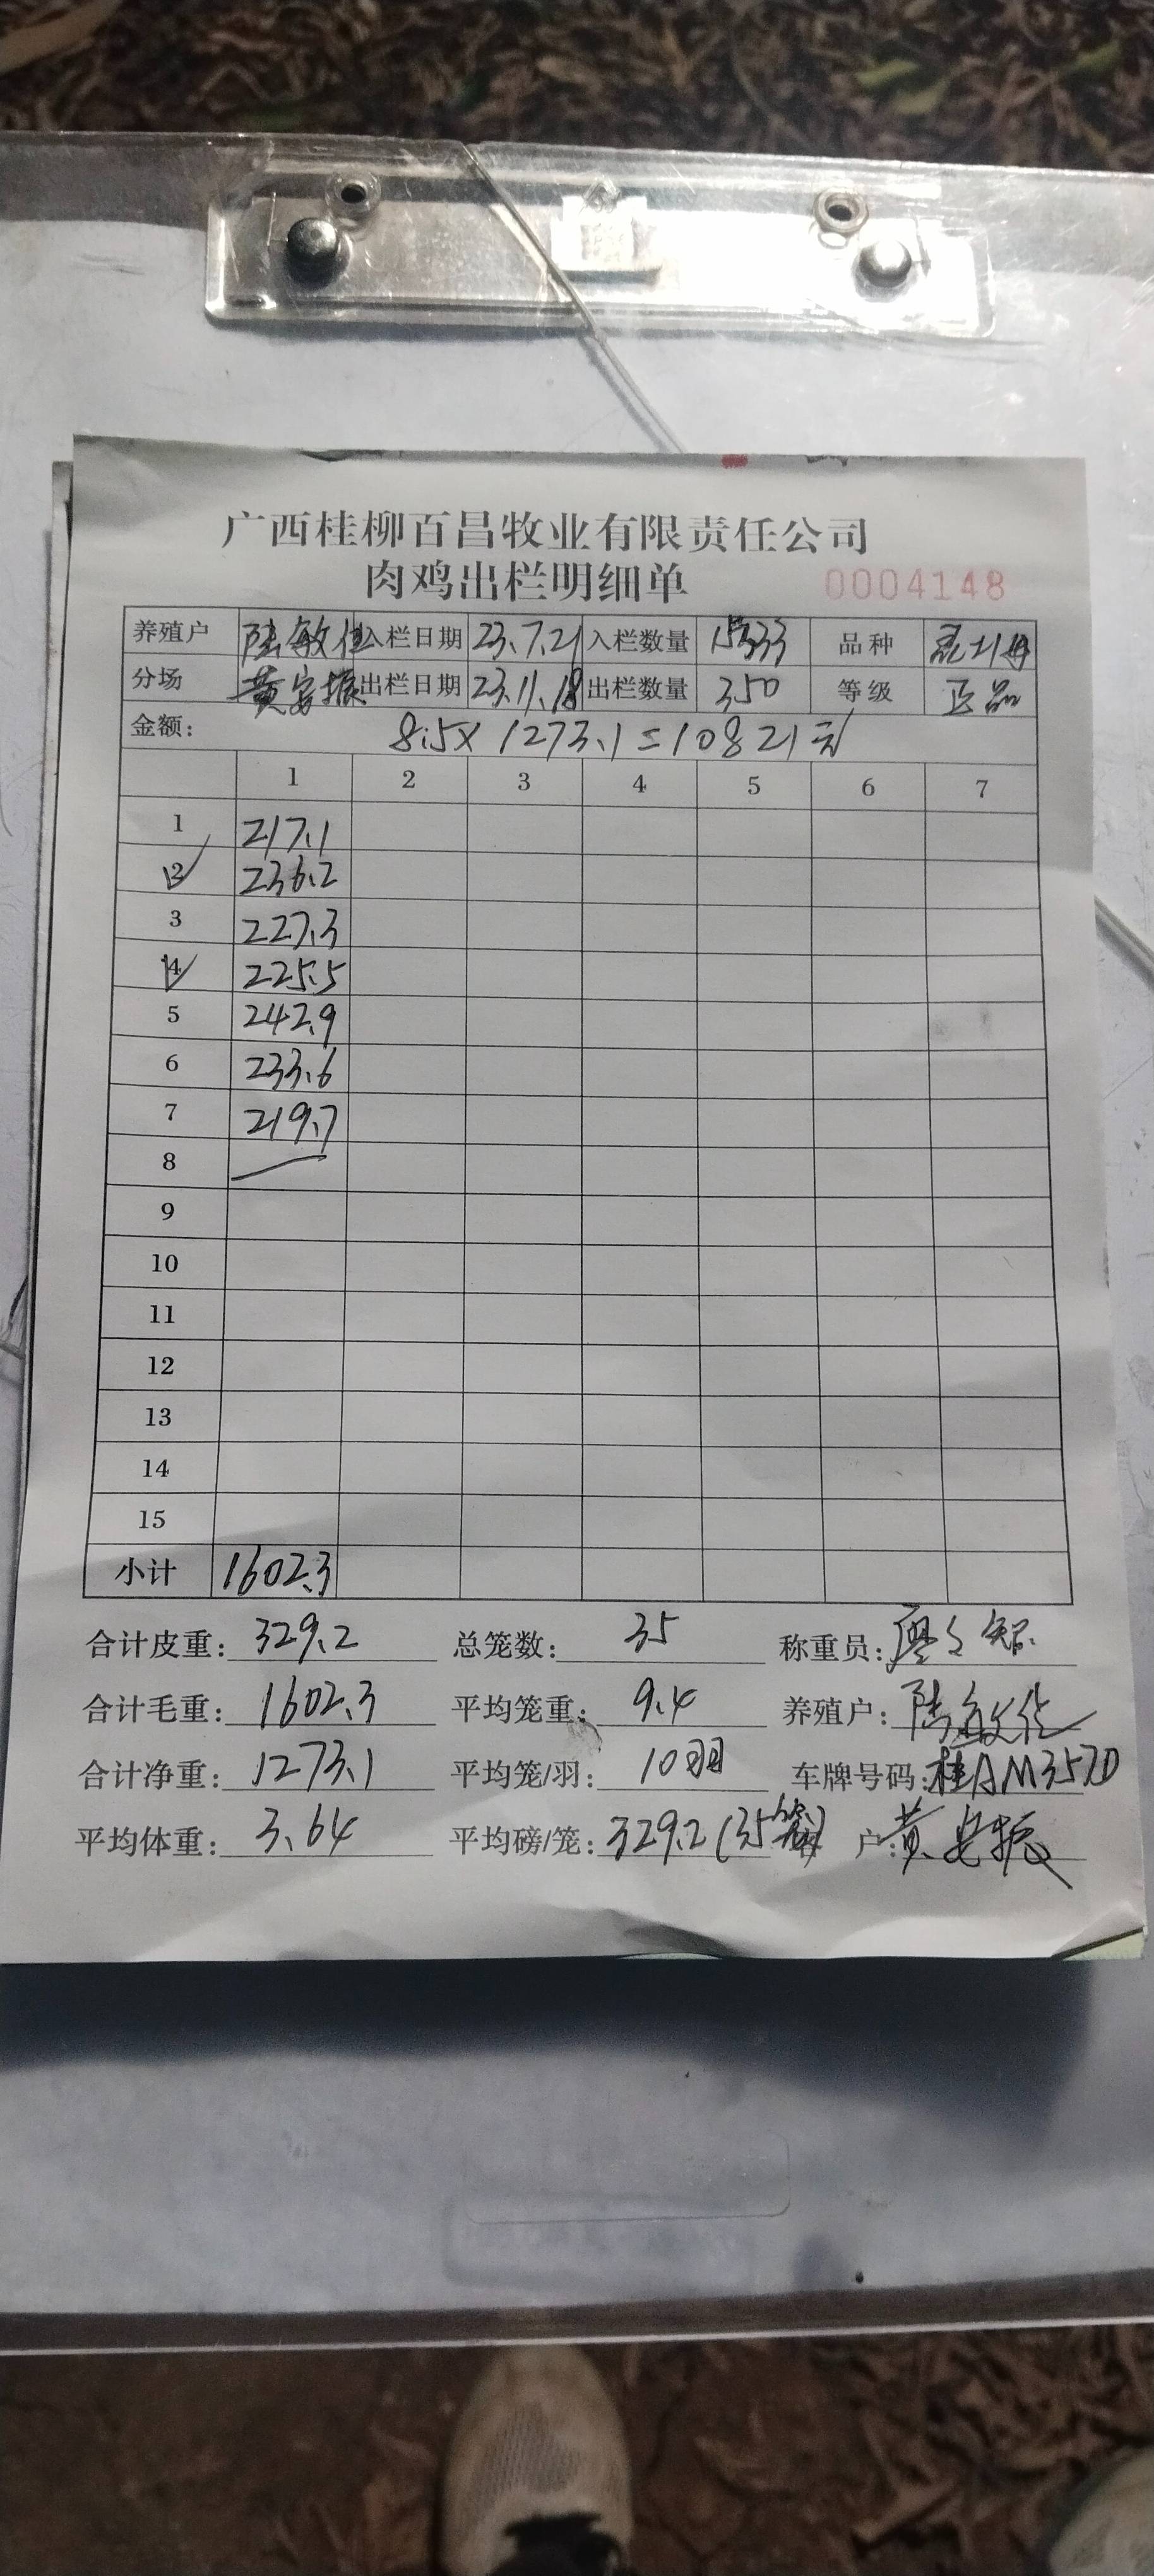 广西桂柳百昌牧业有限责任公司
肉鸡出栏明细单 0004148
养殖户 陆敏佳 入栏日期 23.7.21 入栏数量 15333 品种
分场 黄安振 出栏日期 23.11.18 出栏数量 350 等级 正品
金额: 8.5×1273.1=10821元
1 2 3 4 5 6 7
1 217.1
2 236.2
3 227.3
4 225.5
5 242.9
6 233.6
7 219.7
8
9
10
11
12
13
14
15
小计 1602.3
合计皮重: 329.2 总笼数: 35 称重员: 廖
合计毛重: 1602.3 平均笼重: 9.4 养殖户: 陆敏佳
合计净重: 1273.1 平均笼/羽: 10羽 车牌号码: 桂AM357D
平均体重: 3.64 平均磅/笼: 329.2(35笼) 户: 黄安振